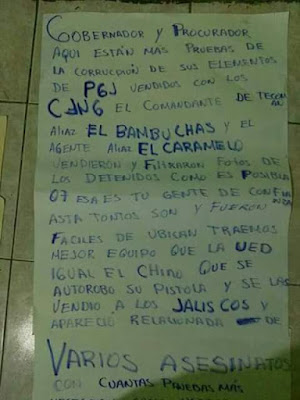 GOBERNADOR Y PROCURADOR
AQUI ESTÁN MAS PRUEBAS DE
LA CORRUPCIÓN DE SUS ELEMENTOS
DE PGJ VENDIDOS CON LOS
CJNG EL COMANDANTE DE TECOM
AN
ALIAZ EL BAMBUCHAS Y EL
AGENTE ALIAZ EL CARAMELO
VENDIERON Y FILTRARON FOTOS DE
LOS DETENIDOS COMO ES POSIBLE
07 ESA ES TU GENTE DE CONFIA
NZA
ASTA TONTOS SON Y FUERON
FACILES DE UBICAR TRAEMOS
MEJOR EQUIPO QUE LA UED
IGUAL EL CHINO QUE SE
AUTOROBO SU PISTOLA Y SE LAS
VENDIO A LOS JALISCOS Y
APARECIO RELACIONADA DE
VARIOS ASESINATOS
CON CUANTAS PRUEBAS MÁS